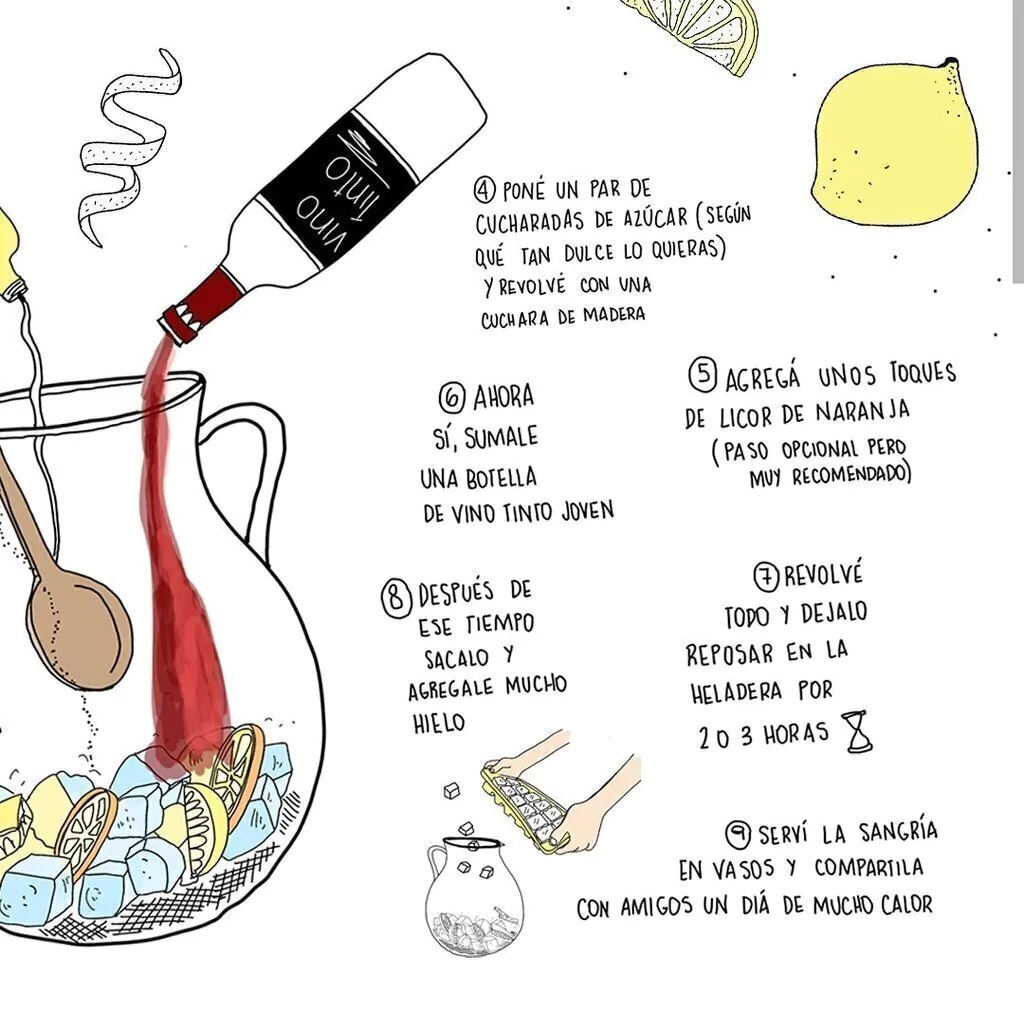 vino
tinto
④ PONÉ UN PAR DE
CUCHARADAS DE AZÚCAR (SEGÚN
QUÉ TAN DULCE LO QUIERAS)
Y REVOLVÉ CON UNA
CUCHARA DE MADERA
⑤ AGREGÁ UNOS TOQUES
DE LICOR DE NARANJA
(PASO OPCIONAL PERO
MUY RECOMENDADO)
⑥ AHORA
SÍ, SUMALE
UNA BOTELLA
DE VINO TINTO JOVEN
⑦ REVOLVÉ
TODO Y DEJALO
REPOSAR EN LA
HELADERA POR
2 O 3 HORAS
⑧ DESPUÉS DE
ESE TIEMPO
SACALO Y
AGREGALE MUCHO
HIELO
⑨ SERVÍ LA SANGRÍA
EN VASOS Y COMPARTILA
CON AMIGOS UN DIÁ DE MUCHO CALOR